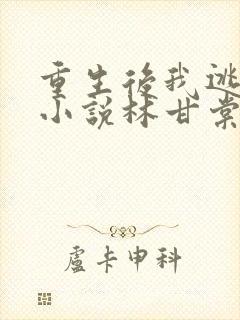 重生後我逃
小說林甘棠
盧卡申科